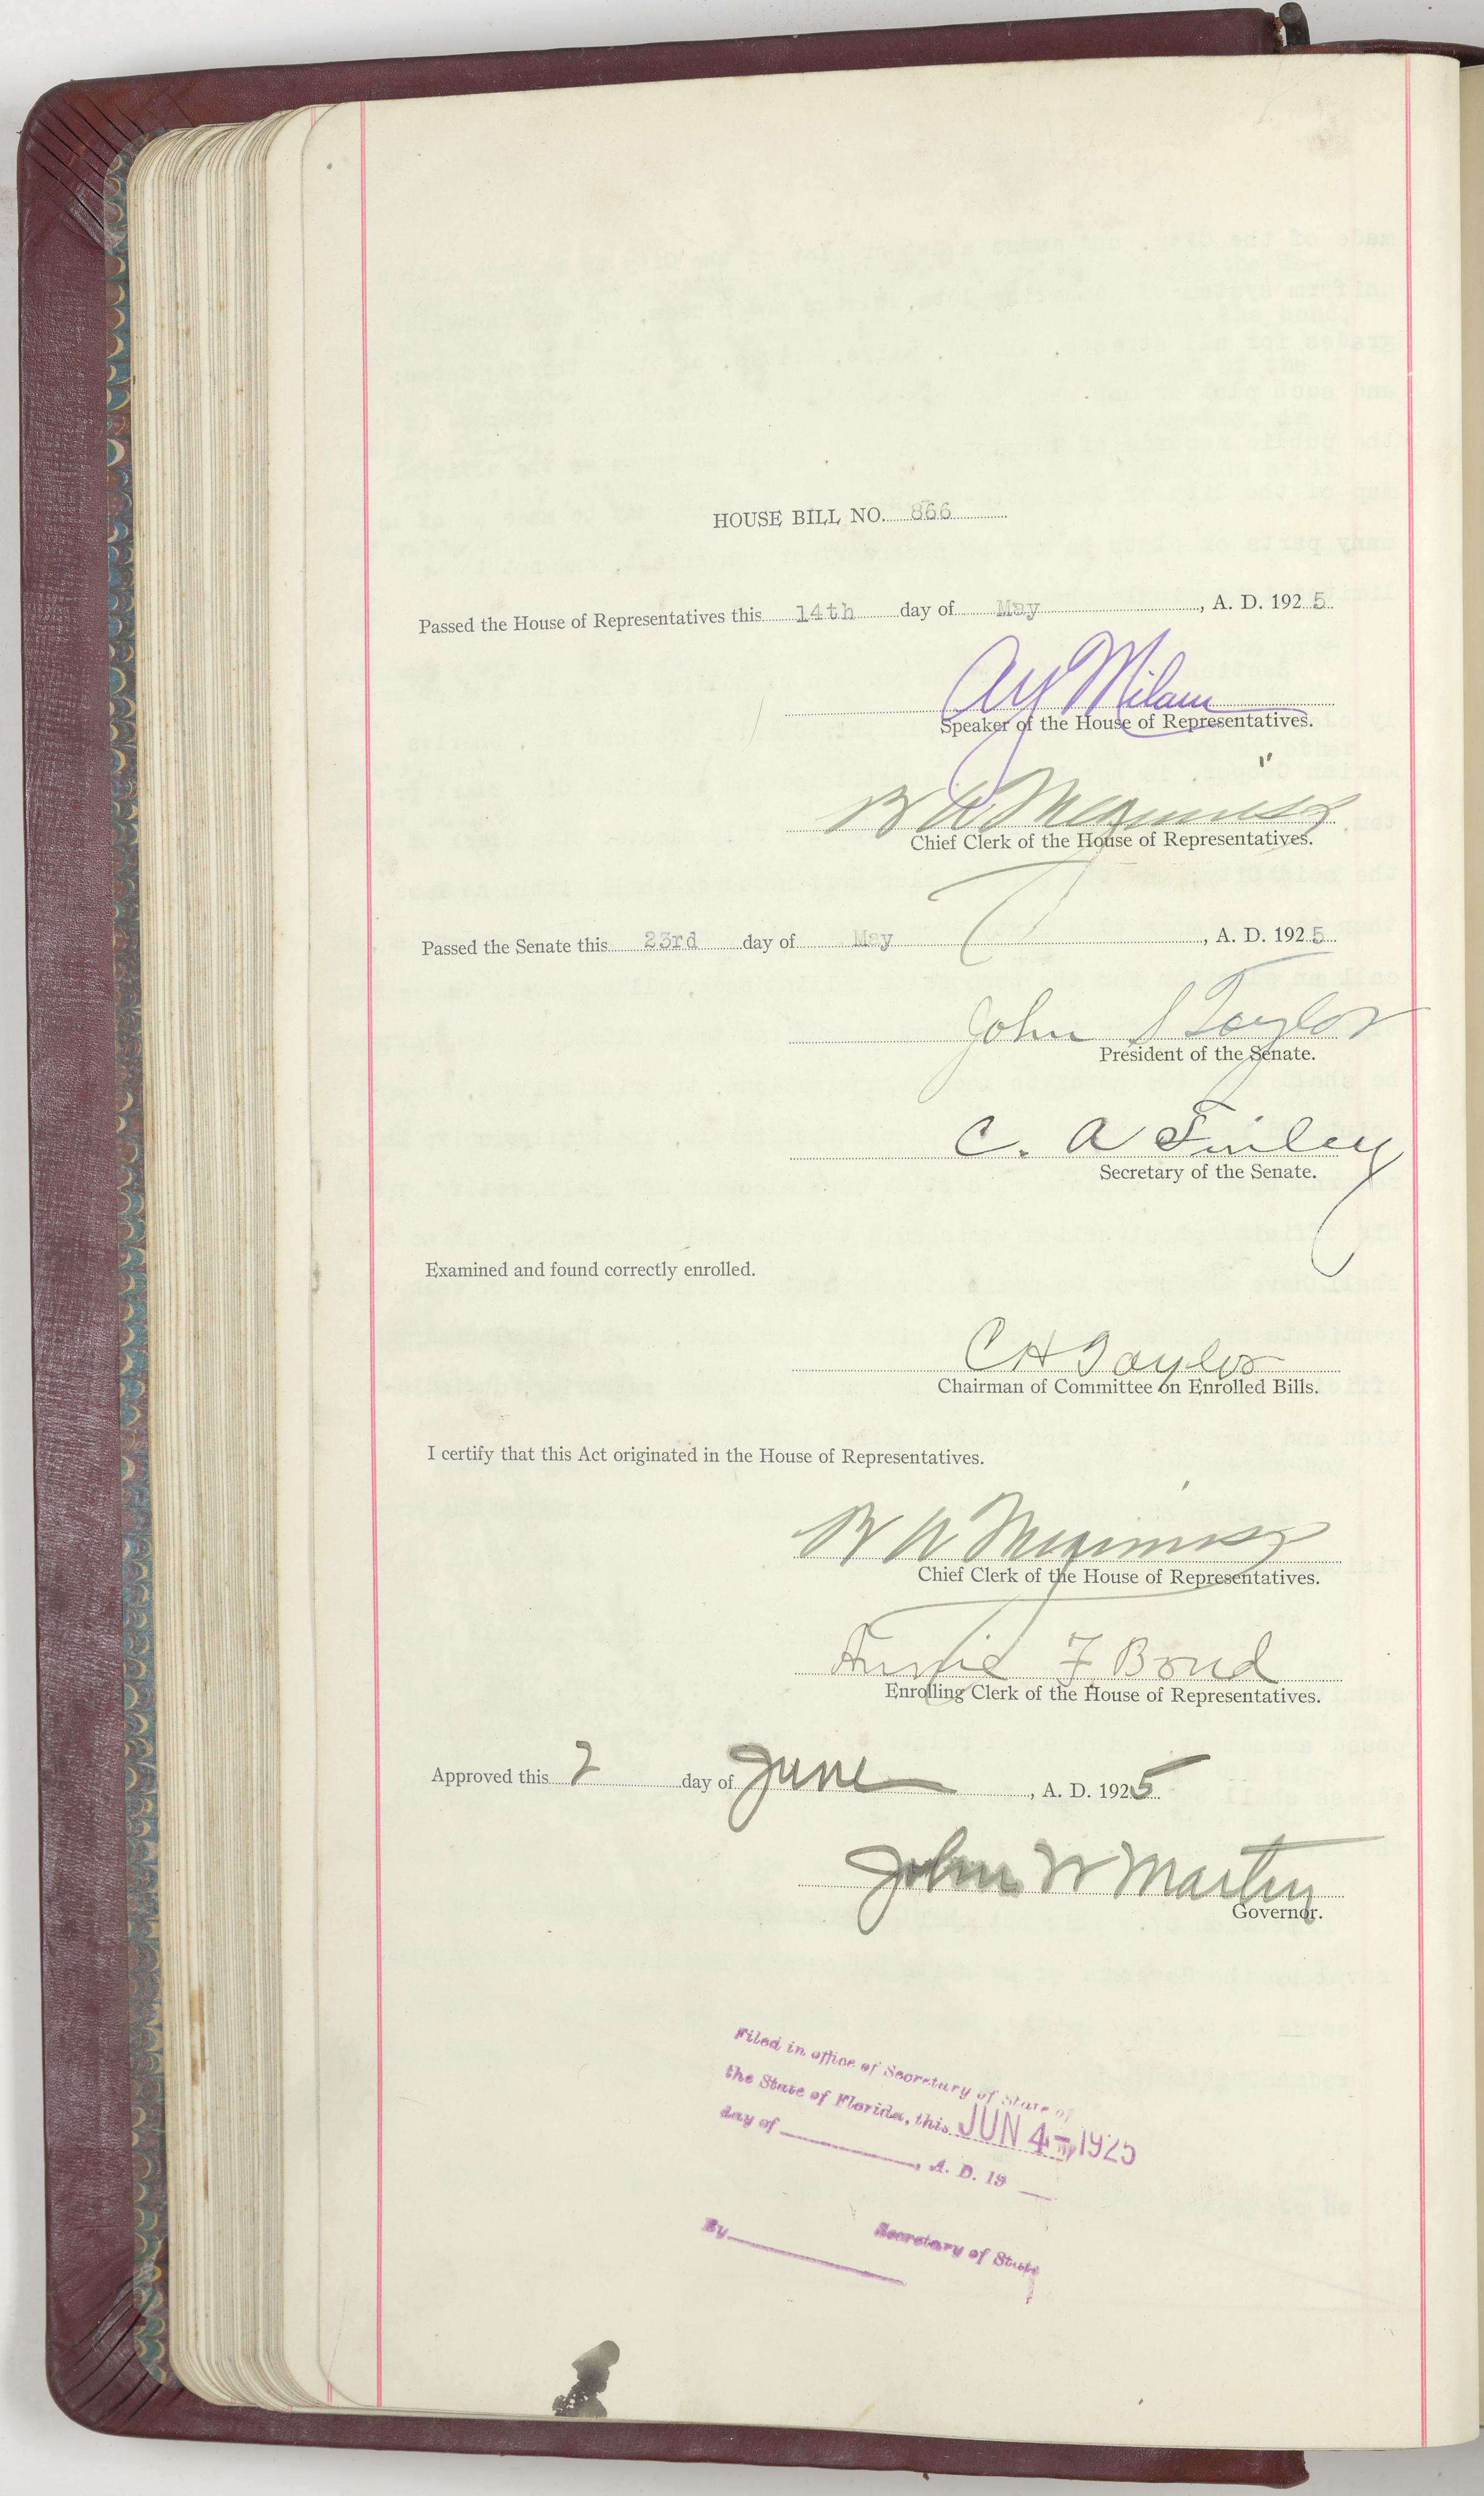 HOUSE BILL NO. 866
Passed the House of Representatives this 14th day of May, A. D. 1925
A Y Milam
Speaker of the House of Representatives.
B A Meginniss
Chief Clerk of the House of Representatives.
Passed the Senate this 23rd day of May, A. D. 1925
John S Taylor
President of the Senate.
C. A Finley
Secretary of the Senate.
Examined and found correctly enrolled.
C H Taylor
Chairman of Committee on Enrolled Bills.
I certify that this Act originated in the House of Representatives.
B A Meginniss
Chief Clerk of the House of Representatives.
F. Bond
Enrolling Clerk of the House of Representatives.
Approved this 2 day of June, A. D. 1925
John W Martin
Governor.
Filed in office of Secretary of State of
the State of Florida, this JUN 4-1925
day of , A. D. 19
Secretary of State
By